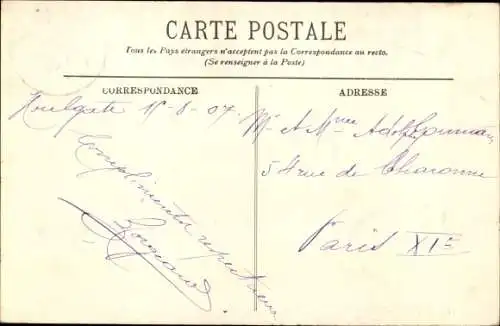 CARTE POSTALE
Tous les Pays étrangers n'acceptent pas la Correspondance au recto.
(Se renseigner à la Poste)
CORRESPONDANCE
ADRESSE
Houlgate 15-8-07
Mr & Mme Adolphe
54 rue de Charonne
Paris XIe
Compliments respectueux